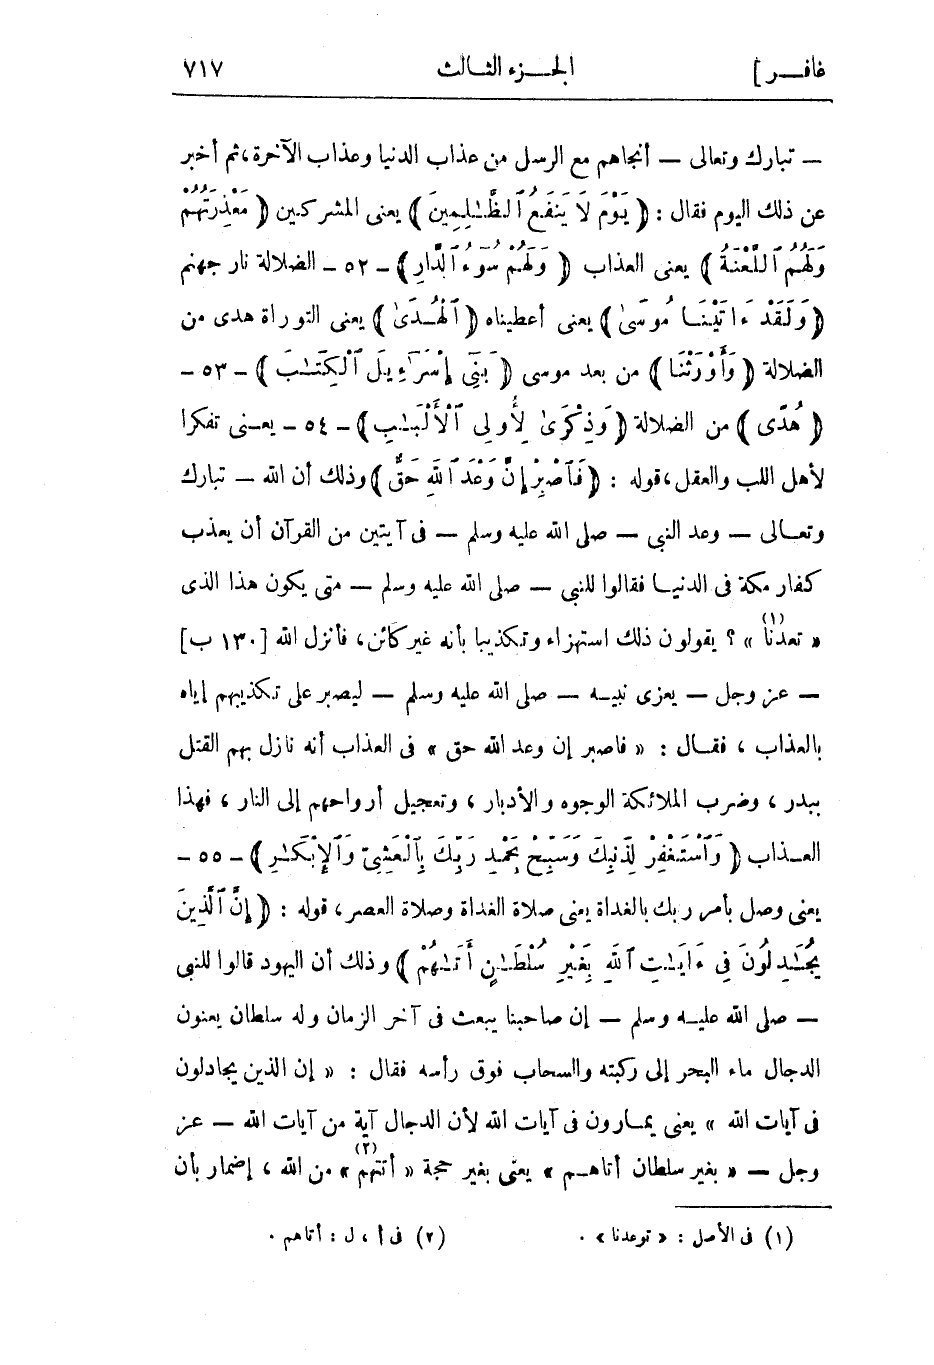 غافر] الجزء الثالث ٧١٧
— تبارك وتعالى — أنجاهم مع الرسل من عذاب الدنيا وعذاب الآخرة، ثم أخبر
عن ذلك اليوم فقال : ﴿ يَوْمَ لَا يَنفَعُ ٱلظَّـٰلِمِينَ ﴾ يعنى المشركين ﴿ مَعْذِرَتُهُمْ
وَلَهُمُ ٱللَّعْنَةُ ﴾ يعنى العذاب ﴿ وَلَهُمْ سُوٓءُ ٱلدَّارِ ﴾ - ٥٢ - الضلالة نار جهنم
﴿ وَلَقَدْ ءَاتَيْنَا مُوسَىٰ ﴾ يعنى أعطيناه ﴿ ٱلْهُدَىٰ ﴾ يعنى التوراة هدى من
الضلالة ﴿ وَأَوْرَثْنَا ﴾ من بعد موسى ﴿ بَنِىٓ إِسْرَٰٓءِيلَ ٱلْكِتَـٰبَ ﴾ - ٥٣ -
﴿ هُدًى ﴾ من الضلالة ﴿ وَذِكْرَىٰ لِأُولِى ٱلْأَلْبَـٰبِ ﴾ - ٥٤ - يعنى تفكرا
لأهل اللب والعقل، قوله : ﴿ فَٱصْبِرْ إِنَّ وَعْدَ ٱللَّهِ حَقٌّ ﴾ وذلك أن الله — تبارك
وتعالى — وعد النبى — صلى الله عليه وسلم — فى آيتين من القرآن أن يعذب
كفار مكة فى الدنيا فقالوا للنبى — صلى الله عليه وسلم — متى يكون هذا الذى
« تعدنا (١) » ؟ يقولون ذلك استهزاء وتكذيبا بأنه غير كائن، فأنزل الله [١٣٠ ب]
— عز وجل — يعزى نبيه — صلى الله عليه وسلم — ليصبر على تكذيبهم إياه
بالعذاب ، فقال : « فاصبر إن وعد الله حق » فى العذاب أنه نازل بهم القتل
ببدر ، وضرب الملائكة الوجوه والأدبار ، وتعجيل أرواحهم إلى النار ، فهذا
العذاب ﴿ وَٱسْتَغْفِرْ لِذَنۢبِكَ وَسَبِّحْ بِحَمْدِ رَبِّكَ بِٱلْعَشِىِّ وَٱلْإِبْكَـٰرِ ﴾ - ٥٥ -
يعنى وصل بأمر ربك بالغداة يعنى صلاة الغداة وصلاة العصر، قوله : ﴿ إِنَّ ٱلَّذِينَ
يُجَـٰدِلُونَ فِىٓ ءَايَـٰتِ ٱللَّهِ بِغَيْرِ سُلْطَـٰنٍ أَتَىٰهُمْ ﴾ وذلك أن اليهود قالوا للنبى
— صلى الله عليه وسلم — إن صاحبنا يبعث فى آخر الزمان وله سلطان يعنون
الدجال ماء البحر إلى ركبته والسحاب فوق رأسه فقال : « إن الذين يجادلون
فى آيات الله » يعنى يمارون فى آيات الله لأن الدجال آية من آيات الله — عز
وجل — « بغير سلطان أتاهم » يعنى بغير حجة « أتتهم (٢) » من الله ، إضمار بأن
(١) فى الأصل : « توعدنا » . (٢) فى أ ، ل : أتاهم .